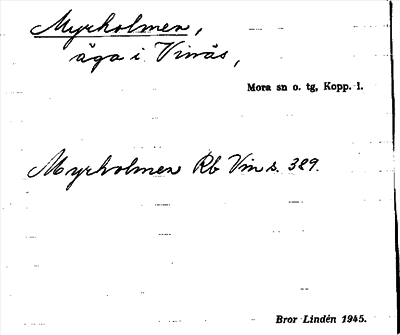 Myrholmen,
äga i Vinäs,
Mora sn o. tg, Kopp. l.
Myrholmen Rb Vin s. 389.
Bror Lindén 1945.